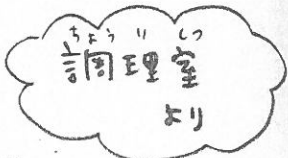 ちょうりしつ
調理室
より